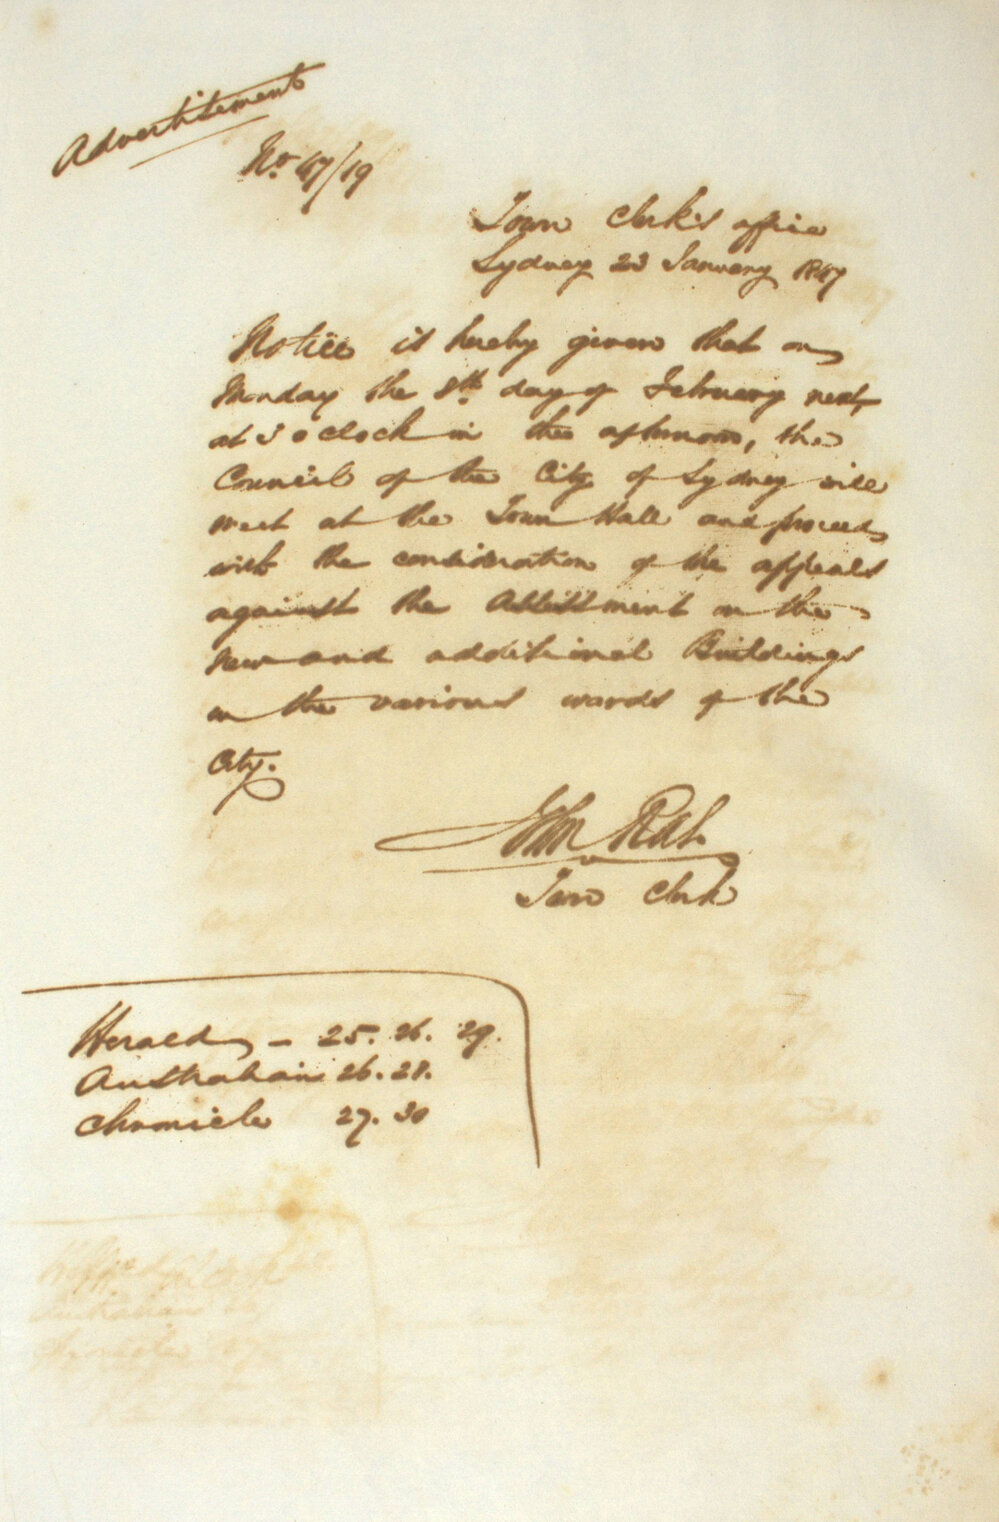 Advertisement
No. 47/19
Town Clerk's office
Sydney 23 January 1847
Notice is hereby given that on
Monday the 8th day of February next,
at 3 o clock in the afternoon, the
Council of the City of Sydney will
meet at the Town Hall and proceed
with the consideration of the appeals
against the Assessment on the
New and additional Buildings
in the various wards of the
City.
John Rae
Town Clerk
Herald - 25. 26. 29.
Australian 26. 28.
Chronicle 27. 30